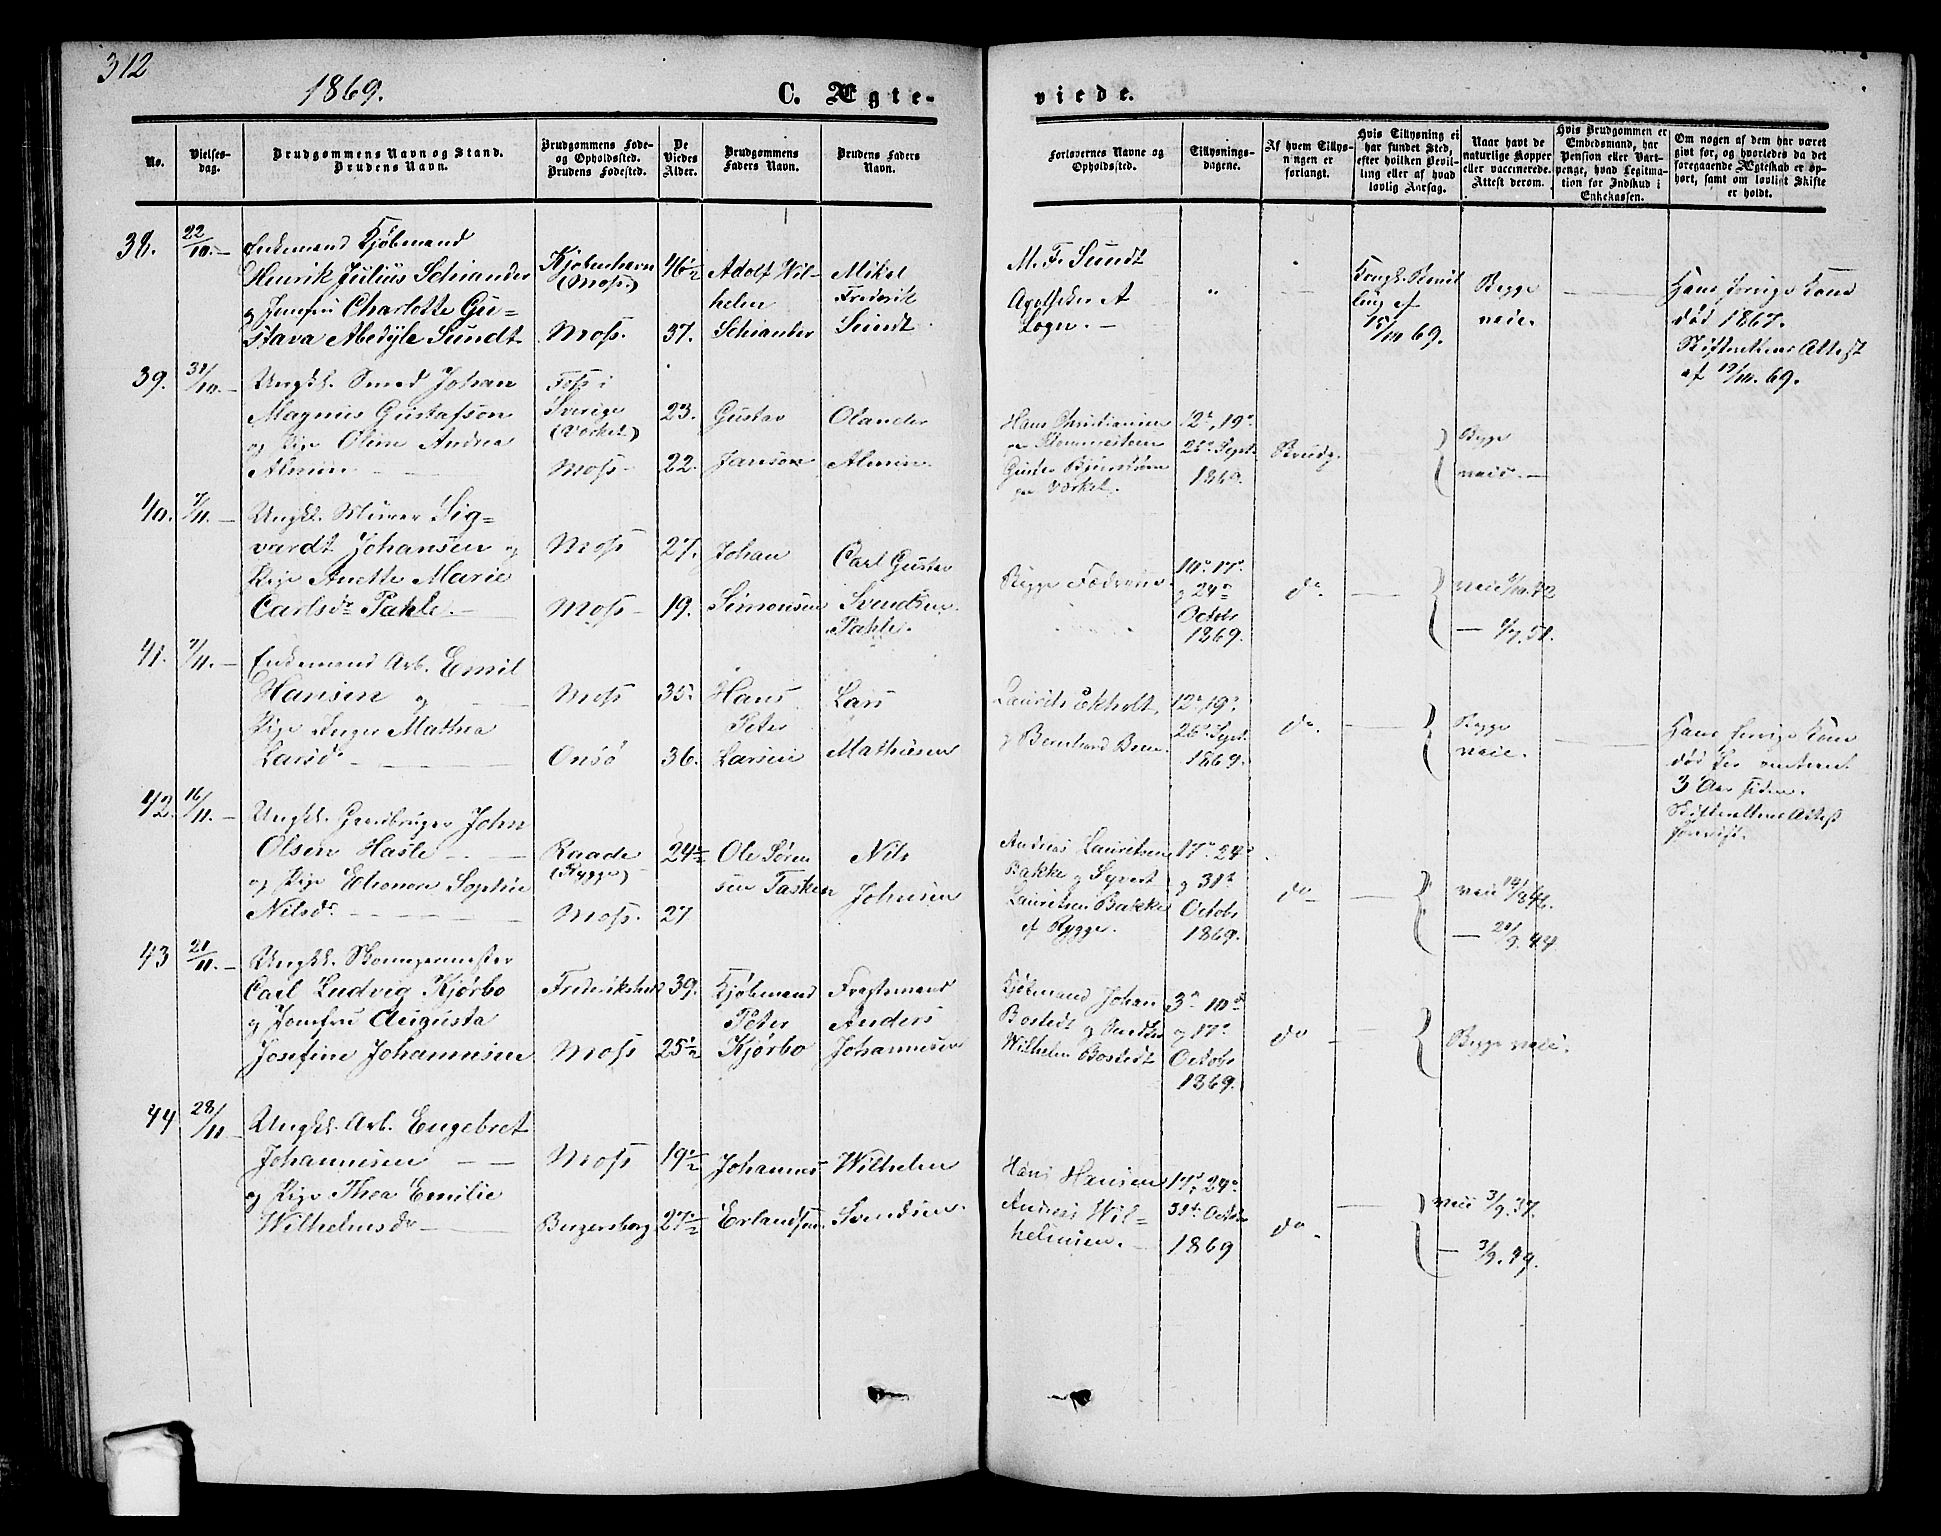 312
1869.
C. Ægte-
viede.
No.
Vielses-
dag.
Brudgommens Navn og Stand.
Brudens Navn.
Brudgommens Føde-
og Opholdssted.
Brudens Fødested.
De
Viedes
Alder.
Brudgommens
Faders Navn.
Brudens Faders
Navn.
Forlovernes Navne og
Opholdssted.
Tillysnings-
dagene.
Af hvem Tillys-
ningen er
forlangt.
Hvis Tillysning ei
har fundet Sted,
efter hvilken Bevil-
ling eller af hvad
lovlig Aarsag.
Naar havt de
naturlige Kopper
eller vaccinerede.
Attest derom.
Hvis Brudgommen er
Embedsmand, har
Pension eller Vart-
penge, hvad Legitma-
tion for Indskud i
Enkekassen.
Om nogen af dem har været
givt før, og hvorledes da det
foregaaende Ægteskab er op-
hørt, samt om lovligt Skifte
er holdt.
38. 22/10.
Enkemand Kjøbmand
Henrik Julius Schiander
og Jomfru Charlotte Gu-
stava Abedyle Sundt
Kjøbenhavn
(Moss.)
Moss.
46½
37.
Adolf Wil-
helm
Schiander
Mikel
Frederik
Sundt.
M. F. Sundt
Apotheker A
Logn.
Kongl. Bevil
ling af
15/10 69.
Begge
vaic.
Hans forrige Kone
død 1867.
Skifterettens Attest
af 12/10. 69.
39. 31/10.
Ungkl. Smed Johan
Magnus Gustafson
og Pige Oline Andrea
Almin
Foss i
Sverige
(Værket)
Moss
23.
22.
Gustav
Janson
Olander
Almin.
Hans Christiansen
Gustav
pr Værket.
12te, 19de
26de Sept.
1869.
Brudg.
Begge
vaic.
40. 7/11.
Ungkl. Murer Sig-
vardt Johansen og
Pige Anette Marie
Carlsdr Pahle.
Moss
Moss
27.
19.
Johan
Simonsen
Carl Gustav
Svendsen
Pahle.
Begge Fædrene.
10de 17de
og 24de
Octobr
1869.
do
vaic
41. 7/11.
Enkemand Arb. Emil
Hansen og
Pige Inger Mathea
Larsdr
Moss
Onsö
35
36.
Hans
Peter
Larsen
Lars
Mathisen
Laurids Ekholt,
og Bernhard
12te, 19de
26de Sept.
1869.
do.
Begge
vaic.
Hans forrige Kone
død for omtrent
3 Aar siden.
Skifterettens Attest
forevist.
42. 16/11.
Ungkl. Gaardbruger John
Olsen Hasle
og Pige Eleonore Sophie
Nilsdr
Raade
(Rygge)
Moss.
24½
27
Ole Søren
sen Tasken
Nils
Johnsen
Andreas Lauritsen
Bakke og Syvert
Lauritsen Bakke
af Rygge.
17de 24de
og 31te
Octobr
1869.
do
vaic
43 21/11.
Ungkl. Bomgermester
Carl Ludvig Kjørbo
og Jomfru Augusta
Josefine Johannesen
Frederikshald
Moss
39.
25½
Kjøbmand
Peter
Kjørbo
Fragtmand
Anders
Johannesen
Kjøbmand Johan
Bostedt og
Wilhelm Bostedt
3de 10de
og 17de
Octobr
1869.
do
Begge vaic.
44 28/11
Ungkl. Arb. Engebret
Johannesen
og Pige Thea Emilie
Wilhelmsdr
Moss
19½
27½
Johannes
Erlandsen
Wilhelm
Svendsen.
Hans Hansen
Andreas Wil-
helmsen.
17de, 24de
31te Octobr
1869
do
vaic 3/9. 37.
3/9. 49.